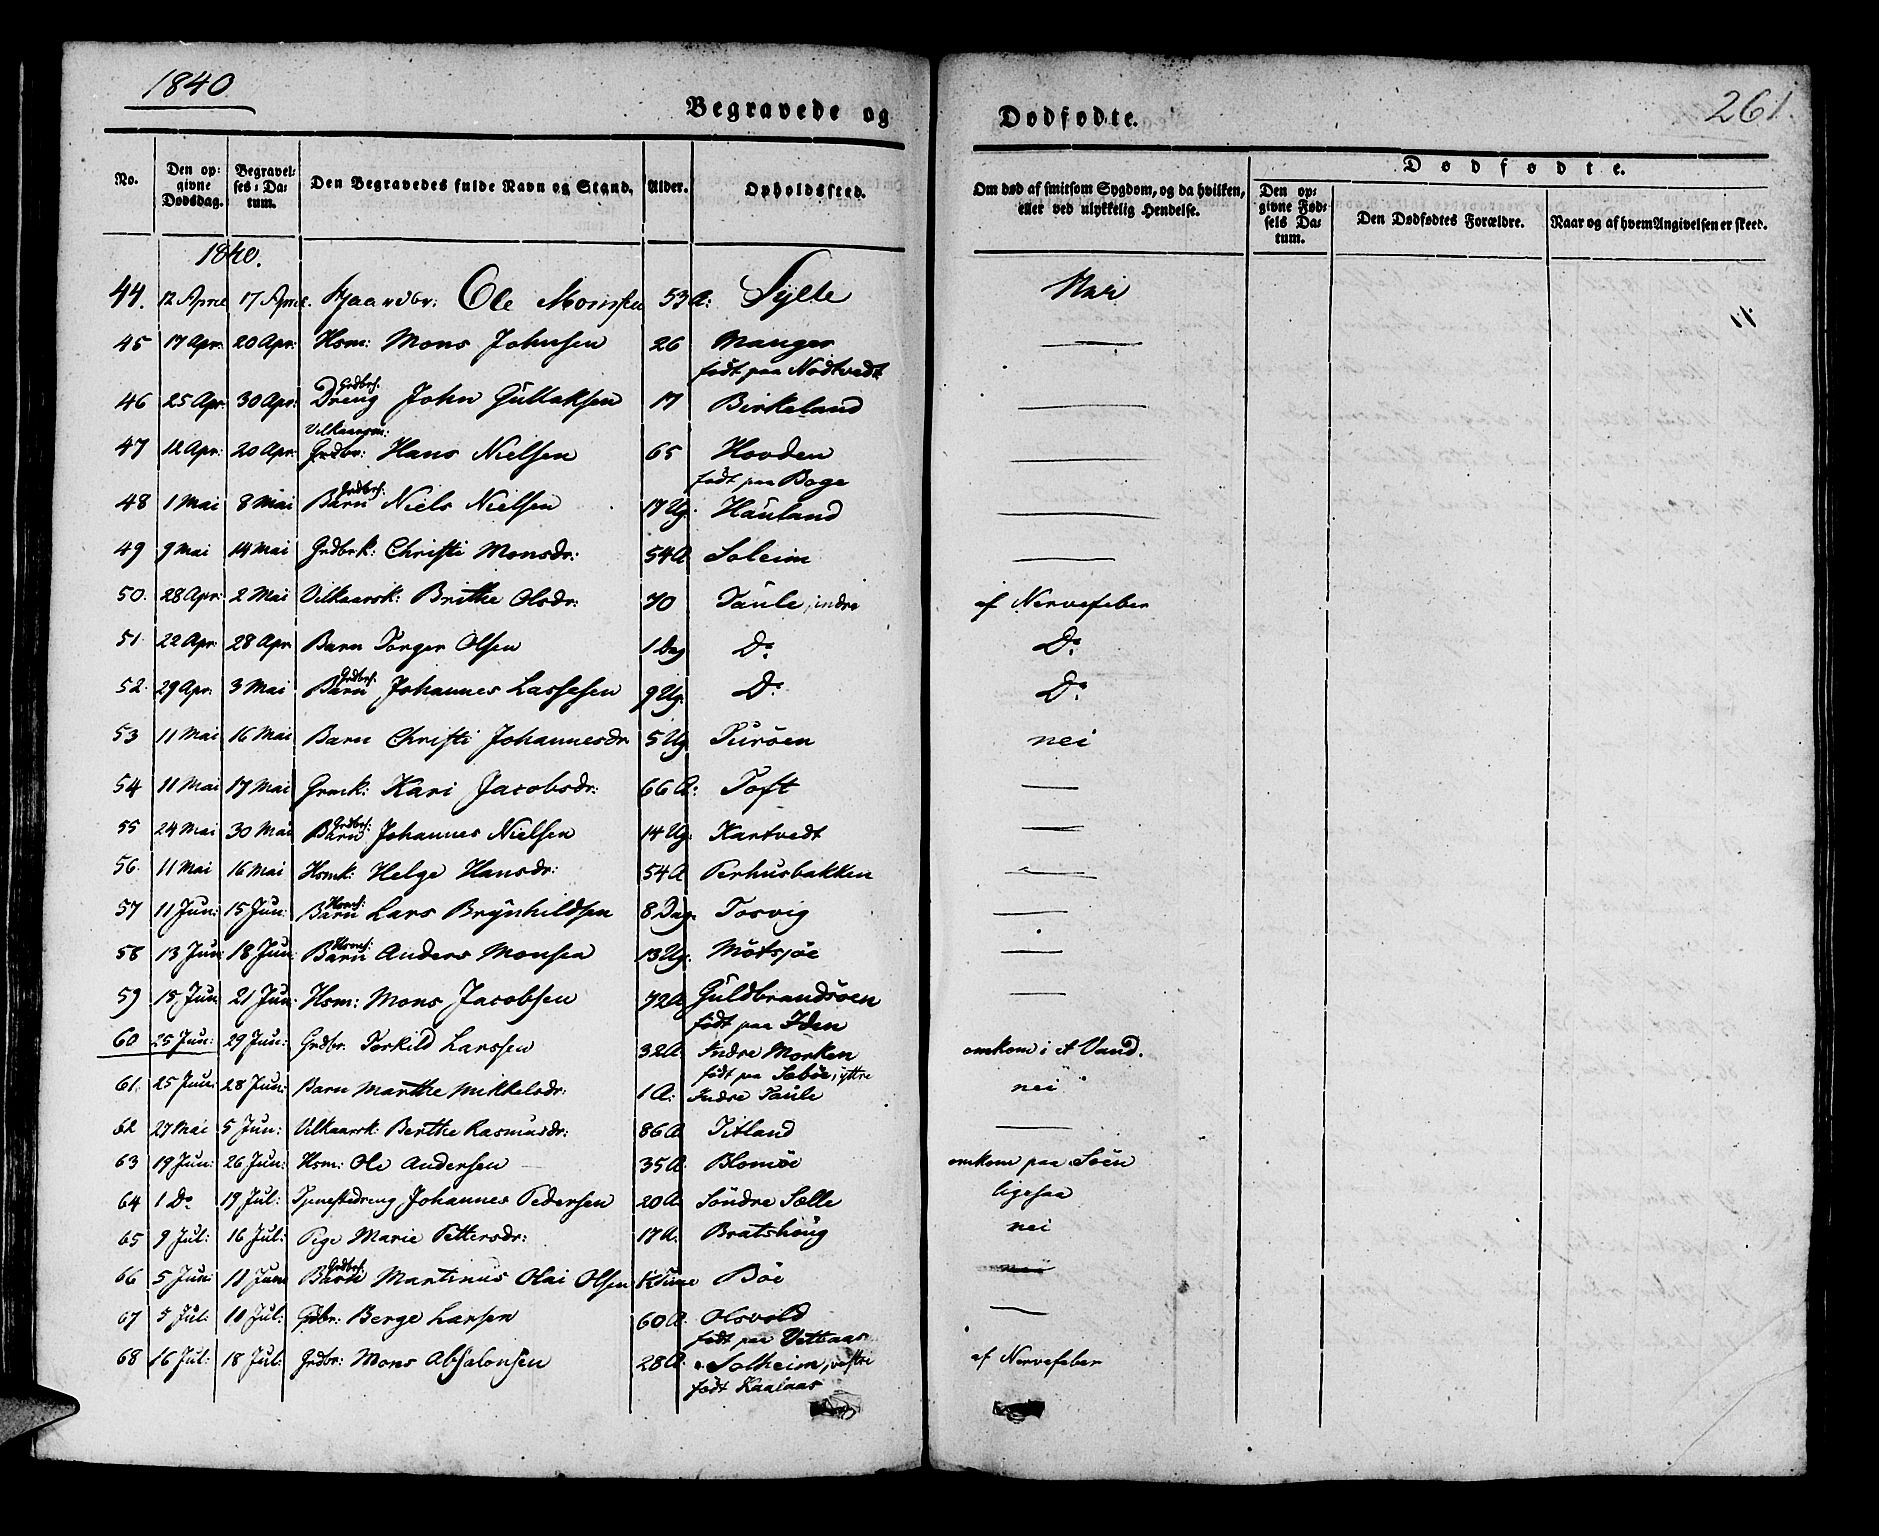 1840
261
Begravede og
Dødfødte.
No.
Den opgivne Dødsdag.
Begravelses-Datum.
Den Begravedes fulde Navn og Stand.
Alder.
Opholdssted.
Om død af smitsom Sygdom, og da hvilken, eller ved ulykkelig Hendelse.
Dødfødte.
Den opgivne Fødsels Datum.
Den Dødfødtes Forældre.
Naar og af hvem Angivelsen er skeed.
1840.
44. 12 April 17 April Gaardbr: Ole Monsen 53 A: Sylte Nei
45 17 Apr: 20 Apr: Hsm: Mons Johnsen 26 Manger —
født paa Nødtvedt
46 25 Apr 30 Apr: Grdbrs. Dreng John Gullaksen 17 Birkeland —
47 12 Apr: 20 Apr: Vilkaarsm: Grdbr: Hans Nielsen 65 Hovden —
født paa Boge
48 1 Mai 8 Mai Grdbrs. Barn Niels Nielsen 17 Ug: Hauland —
49 9 Mai 14 Mai Grdbrk: Christi Monsdr: 54 A Soleim —
50. 28 Apr: 2 Mai Vilkaarsk: Brithe Olsdr: 70 Taule, indre af Nervefeber
51. 22 Apr 28 Apr: Barn Torger Olsen 1 Dag Do. Do.
52. 29 Apr: 3 Mai Grdbrs. Barn Johannes Lassesen 9 Ug. Do. Do.
53 11 Mai 16 Mai Barn Christi Johannesdr 5 Ug Turøen nei
54 11 Mai 17 Mai Grmk: Kari Jacobsdr: 66 A: Toft —
55 24 Mai 30 Mai Grdbrs: Barn Johannes Nielsen 14 Ug: Kartvedt —
56. 11 Mai 16 Mai Hsmk: Helge Hansdr: 54 A Perhusbakken —
57 11 Jun: 15 Jun: Hsms: Barn Lars Brynhildsen 8 Dag. Tosvig —
58 13 Jun: 18 Jun: Hsms: Barn Anders Monsen 13 Ug: Møtsjøe —
59 15 Jun 21 Jun: Hsm: Mons Jacobsen 72 A Guldbrandsøen —
født paa Iden
60 25 Jun: 29 Jun: Grdbr. Torkild Larssen 32 A. Indre Morken omkom i et Vand.
født paa Sæbøe, yttre
61. 25 Jun: 28 Jun: Barn Marthe Mikkelsdr: 1 A: Indre Taule nei
62 27 Mai 5 Jun: Vilkaarsk: Berthe Rasmusdr: 86 A Titland —
63 19 Jun: 26 Jun: Hsm: Ole Andersen 35 A. Blomøe omkom paa Søen
64 1 Do 19 Jul: Tjenestedreng Johannes Pedersen 20 A. Søndre Sælle ligesaa
65 9 Jul: 16 Jul: Pige Marie Pettersdr: 17 A. Bratshoug nei
66 5 Jun: 11 Jun: Grdbrs. Barn Martinus Olai Olsen Time Bøe nei
67 5 Jul: 10 Jul: Grdbr: Berge Larsen 60 A. Olsvold —
født paa Vettaas
68 16 Jul: 18 Jul: Grdbr: Mons Absalonsen 28 A. Solheim, vestre af Nervefeber
født Kaalaas